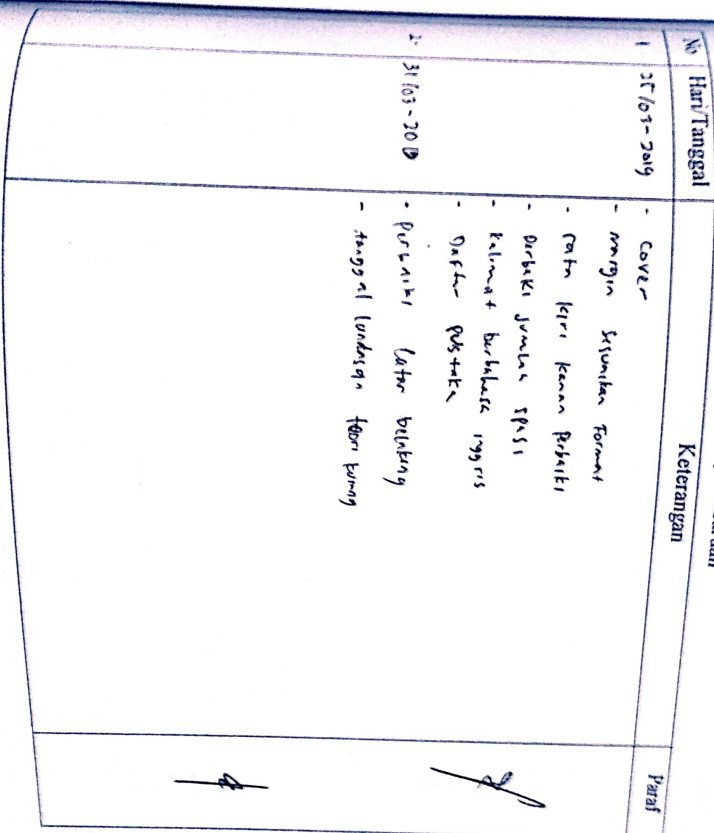 No Hari/Tanggal Keterangan Paraf
1 25/03-2019 - Cover
- margin sesuaikan Format
- rata kiri kanan Perbaiki
- Perbaki jumlha spasi
- Kalimat berbahasa inggris
- Daftar Pustaka
2. 31/03-2019 - Perbaiki latar belakang
- tanggal landasan teori kurang